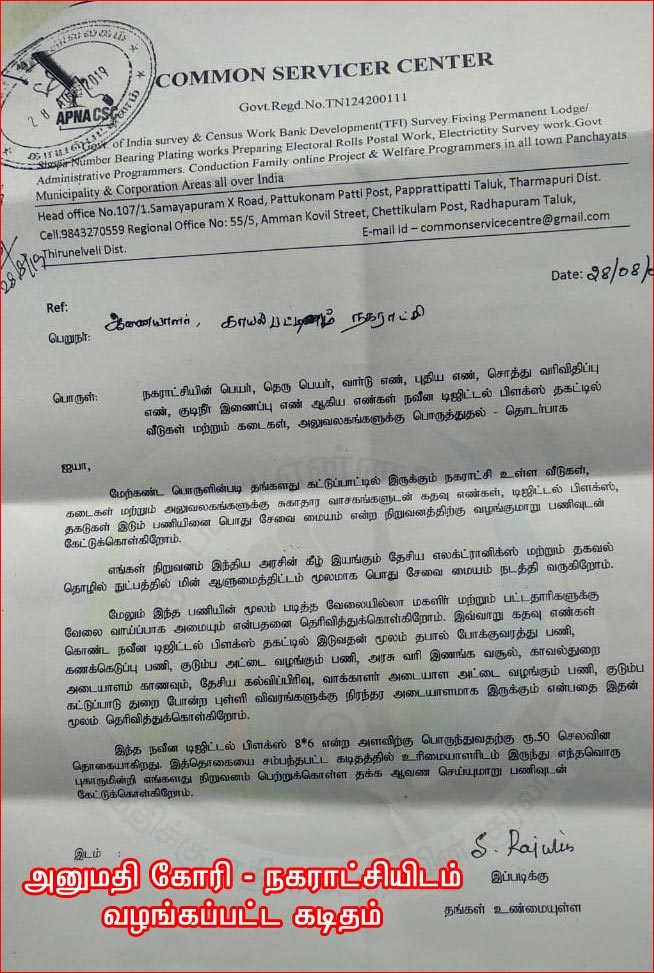 28 AUG 2019
APNA CSC
COMMON SERVICER CENTER
Govt.Regd.No.TN124200111
Govt of India survey & Census Work Bank Development(TFI) Survey Fixing Permanent Lodge/
Shops Number Bearing Plating works Preparing Electoral Rolls Postal Work, Electrictity Survey work.Govt
Administrative Programmers. Conduction Family online Project & Welfare Programmers in all town Panchayats
Municipality & Corporation Areas all over India
Head office No.107/1.Samayapuram X Road, Pattukonam Patti Post, Papprattipatti Taluk, Tharmapuri Dist.
Cell.9843270559 Regional Office No: 55/5, Amman Kovil Street, Chettikulam Post, Radhapuram Taluk,
Thirunelveli Dist. E-mail Id – commonservicecentre@gmail.com
28/8/19
Date: 28/08/
Ref:
பெறுநர்: ஆணையாளர், காயல்பட்டினம் நகராட்சி
பொருள்: நகராட்சியின் பெயர், தெரு பெயர், வார்டு எண், புதிய எண், சொத்து வரிவிதிப்பு
எண், குடிநீர் இணைப்பு எண் ஆகிய எண்கள் நவீன டிஜிட்டல் பிளக்ஸ் தகட்டில்
வீடுகள் மற்றும் கடைகள், அலுவலகங்களுக்கு பொருத்துதல் – தொடர்பாக
ஐயா,
மேற்கண்ட பொருளின்படி தங்களது கட்டுப்பாட்டில் இருக்கும் நகராட்சி உள்ள வீடுகள்,
கடைகள் மற்றும் அலுவலகங்களுக்கு சுகாதார வாசகங்களுடன் கதவு எண்கள், டிஜிட்டல் பிளக்ஸ்,
தகடுகள் இடும் பணியினை பொது சேவை மையம் என்ற நிறுவனத்திற்கு வழங்குமாறு பணிவுடன்
கேட்டுக்கொள்கிறோம்.
எங்கள் நிறுவனம் இந்திய அரசின் கீழ் இயங்கும் தேசிய எலக்ட்ரானிக்ஸ் மற்றும் தகவல்
தொழில் நுட்பத்தில் மின் ஆளுமைத்திட்டம் மூலமாக பொது சேவை மையம் நடத்தி வருகிறோம்.
மேலும் இந்த பணியின் மூலம் படித்த வேலையில்லா மகளிர் மற்றும் பட்டதாரிகளுக்கு
வேலை வாய்ப்பாக அமையும் என்பதனை தெரிவித்துக்கொள்கிறோம். இவ்வாறு கதவு எண்கள்
கொண்ட நவீன டிஜிட்டல் பிளக்ஸ் தகட்டில் இடுவதன் மூலம் தபால் போக்குவரத்து பணி,
கணக்கெடுப்பு பணி, குடும்ப அட்டை வழங்கும் பணி, அரசு வரி இணங்க வசூல், காவல்துறை
அடையாளம் காணவும், தேசிய கல்விப்பிரிவு, வாக்காளர் அடையாள அட்டை வழங்கும் பணி, குடும்ப
கட்டுப்பாடு துறை போன்ற புள்ளி விவரங்களுக்கு நிரந்தர அடையாளமாக இருக்கும் என்பதை இதன்
மூலம் தெரிவித்துக்கொள்கிறோம்.
இந்த நவீன டிஜிட்டல் பிளக்ஸ் 8*6 என்ற அளவிற்கு பொருந்துவதற்கு ரூ.50 செலவின
தொகையாகிறது. இத்தொகையை சம்பந்தபட்ட கடிதத்தில் உரிமையாளரிடம் இருந்து எந்தவொரு
புகாருமின்றி எங்களது நிறுவனம் பெற்றுக்கொள்ள தக்க ஆவண செய்யுமாறு பணிவுடன்
கேட்டுக்கொள்கிறோம்.
இடம் :
இப்படிக்கு
தங்கள் உண்மையுள்ள
அனுமதி கோரி - நகராட்சியிடம்
வழங்கப்பட்ட கடிதம்